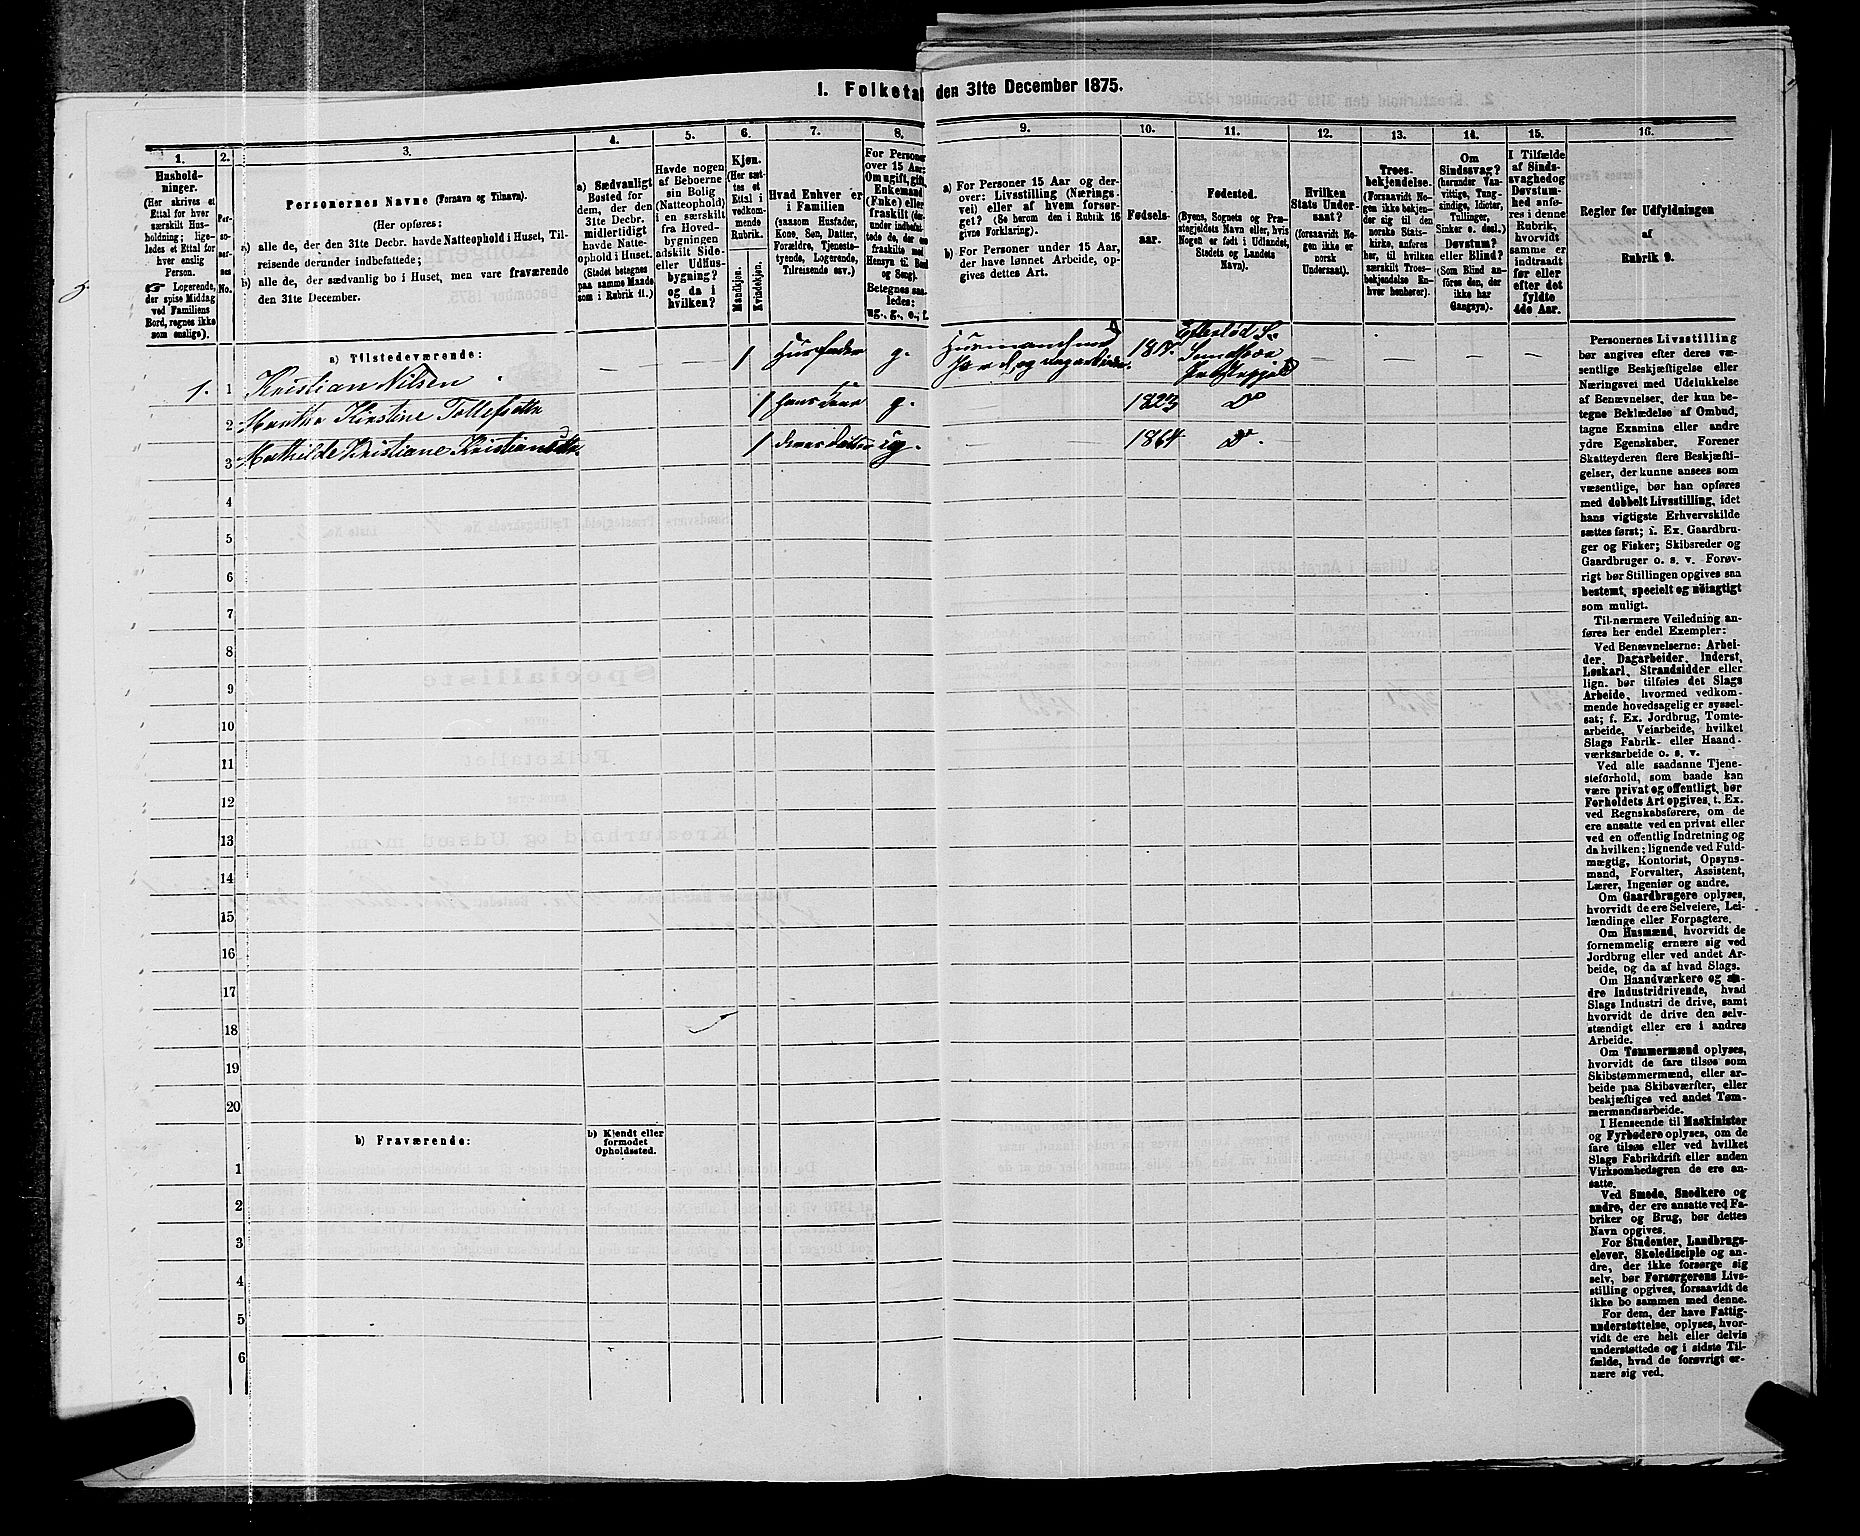 1. Folketal den 31te December 1875.
1.
Husholdninger.
(Her skrives et
Ettal for hver
særskilt Husholdning;
ligeledes et Ettal for
hver enslig
Person.
☞ Logerende,
der spise Middag
ved Familiens
Bord, regnes ikke
som enslige).
2.
Personernes
No.
3.
Personernes Navne (Fornavn og Tilnavn).
(Her opføres:
a) alle de, der den 31te Decbr. havde Natteophold i Huset, Tilreisende derunder indbefattede;
b) alle de, der sædvanlig bo i Huset, men vare fraværende
den 31te December.
4.
a) Sædvanligt
Bosted for
dem, der den
31te Decbr.
midlertidigt
havde Natteophold i Huset.
(Stedet betegnes
paa samme Maade
som i Rubrik 11.)
5.
Havde nogen
af Beboerne
sin Bolig
(Natteophold)
i en særskilt
fra Hovedbygningen
adskilt Side-
eller Udhusbygning?
og da i
hvilken?
6.
Kjøn.
(Her sættes et
Ettal i
vedkommende
Rubrik.)
Mandkjøn.
Kvindekjøn.
7.
Hvad Enhver er
i Familien
(saasom Husfader,
Kone, Søn, Datter,
Forældre, Tjenestetyende, Logerende,
Tilreisende osv.)
8.
For Personer
over 15 Aar:
Om ugift, gift,
Enkemand
(Enke) eller
fraskilt
Betegnes saaledes:
ug., g., e., f.
9.
a) For Personer 15 Aar og derover: Livsstilling (Næringsvei) eller af hvem forsørget? (Se herom den i Rubrik 16
givne Forklaring).
b) For Personer under 15 Aar,
der have lønnet Arbeide, opgives dettes Art.
10.
Fødselsaar.
11.
Fødested.
(Byens, Sognets og Præstegjeldets Navn eller, hvis
Nogen er født i Udlandet,
Stedets og Landets
Navn).
12.
Hvilken
Stats Undersaat?
(forsaavidt Nogen ikke er
norsk
Undersaat).
13.
Troesbekjendelse.
(Forsaavidt Nogen ikke bekjender sig til den
norske Statskirke, anføres
her, til hvilken
særskilt Troesbekjendelse Enhver henhører).
14.
Om
Sindssvag?
(herunder Vanvittige, Tungsindige, Idioter,
Tullinger,
Sinker o. desl.)
Døvstum?
eller Blind?
(Som Blind anføres den, der
ikke har
Gangsyn).
15.
I Tilfælde
af Sindssvaghed og
Døvstumhed anføres i denne
Rubrik,
hvorvidt
samme er
indtraadt
før eller
efter det
fyldte
4de Aar.
16.
Regler for Udfyldningen
af
Rubrik 9.
a) Tilstedeværende:
1. 1 Kristian Nilsen 1 Husfader g. Husmand med Jord og Dagarbeider. Eftelød S. Sandsvær Præstegjeld
2 Martha Kirstine Tollefsdtr 1 hans Kone g. 1823 Do
3 Mathilde Kristiane Kristiansdtr. 1 deres Datter ug. 1864 Do.
4
5
6
7
8
9
10
11
12
13
14
15
16
17
18
19
20
b) Fraværende:
b) Kjendt eller
formodet
Opholdssted.
1
2
3
4
5
6
Personernes Livsstilling
bør angives efter deres væsentlige Beskjæftigelse eller
Næringsvei med Udelukkelse
af Benævnelser, der kun betegne Beklædelse af Ombud,
tagne Examina eller andre
ydre Egenskaber. Forener
Skatteyderen flere Beskjæftigelser, der kunne ansees som
væsentlige, bør han opføres
med dobbelt Livsstilling, idet
hans vigtigste Erhvervskilde
sættes først; i. Ex. Gaardbruger og Fisker; Skibsreder og
Gaardbruger o. s. v. Forøvrigt bør Stillingen opgives saa
bestemt, specielt og nöiagtigt
som muligt.
Til nærmere Veiledning anføres her endel Exempler:
Ved Benævnelserne: Arbeider, Dagarbeider, Inderst,
Løskarl, Strandsidder eller
lign. bør tilføies det Slags
Arbeide, hvormed vedkommende hovedsagelig er sysselsat; f. Ex. Jordbrug, Tomtearbeide, Veiarbeide, hvilket
Slags Fabrik- eller Haandværksarbeide o. s. v.
Ved alle saadanne Tjenesteførhold, som baade kan
være privat og offentligt, bør
Forholdets Art opgives, t. Ex.
ved Regnskabsførere, om de
ere ansatte ved en privat eller
ved en offentlig Indretning og
da hvilken; lignende ved Fuldmægtig, Kontorist, Opsynsmand, Forvalter, Assistent,
Lærer, Ingeniør og andre.
Om Gaardbrugere oplyses,
hvorvidt de ere Selveiere, Leilændinge eller Forpagtere.
Om Husmænd, hvorvidt de
fornemmelig ernære sig ved
Jordbrug eller ved andet Arbeide, og da af hvad Slags.
Om Haandværkere og andre Industridrivende, hvad
Slags Industri de drive, samt
hvorvidt de drive den selvstændigt eller ere i andres
Arbeide.
Om Tømmermænd oplyses,
hvorvidt de fare tilsøs som
Skibstømmermænd, eller arbeide paa Skibsværfter, eller
beskjæftiges ved andet Tømmermandsarbeide.
I Henseende til Maskinister
og Fyrbødere oplyses, om de
fare tilsøs eller ved hvilket
Slags Fabrikdrift eller anden
Virksomhedsgren de ere ansatte.
Ved Smede, Snedkere og
andre, der ere ansatte ved Fabriker og Brug, bør dettes
Navn opgives.
For Studenter, Landbrugselever, Skoledisciple og andre, der ikke forsørge sig
selv, bør Forsørgerens Livsstilling opgives, forsaavidt de
ikke bo sammen med denne.
For dem, der have Fattigunderstøttelse, oplyses, hvorvidt de ere helt eller delvis
understøttede og i sidste Tilfælde, hvad de forøvrigt ernære sig ved.